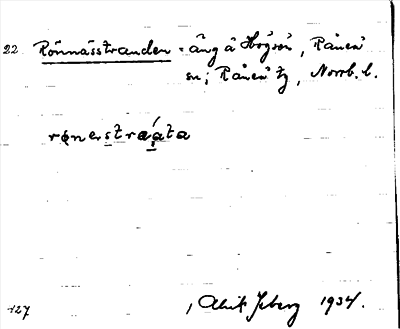 22 Rönnässtranden = äng å Högsön, Råneå
sn; Råneå tg, Norrb. l.
rønerstraata
127
1934.